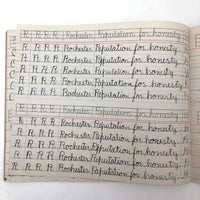 R. R. R. R. Rochester. Reputation for honesty.
R. R. R. R. Rochester Reputation for honesty.
R. R. R. R. Rochester Reputation for honesty.
R. R. R. R. Rochester Reputation for honesty.
R. R. R. R. Rochester Reputation for honesty.
R. R. R. R. Rochester. Reputation for honesty
R. R. R. R. Rochester. Reputation for honesty
R. R. R. R. Rochester. Reputation for honesty
R. R. R. R. Rochester. Reputation for honesty.
R. R. R. R. Rochester. Reputation for honesty.
R. R. R. R. Rochester. Reputation for honesty.